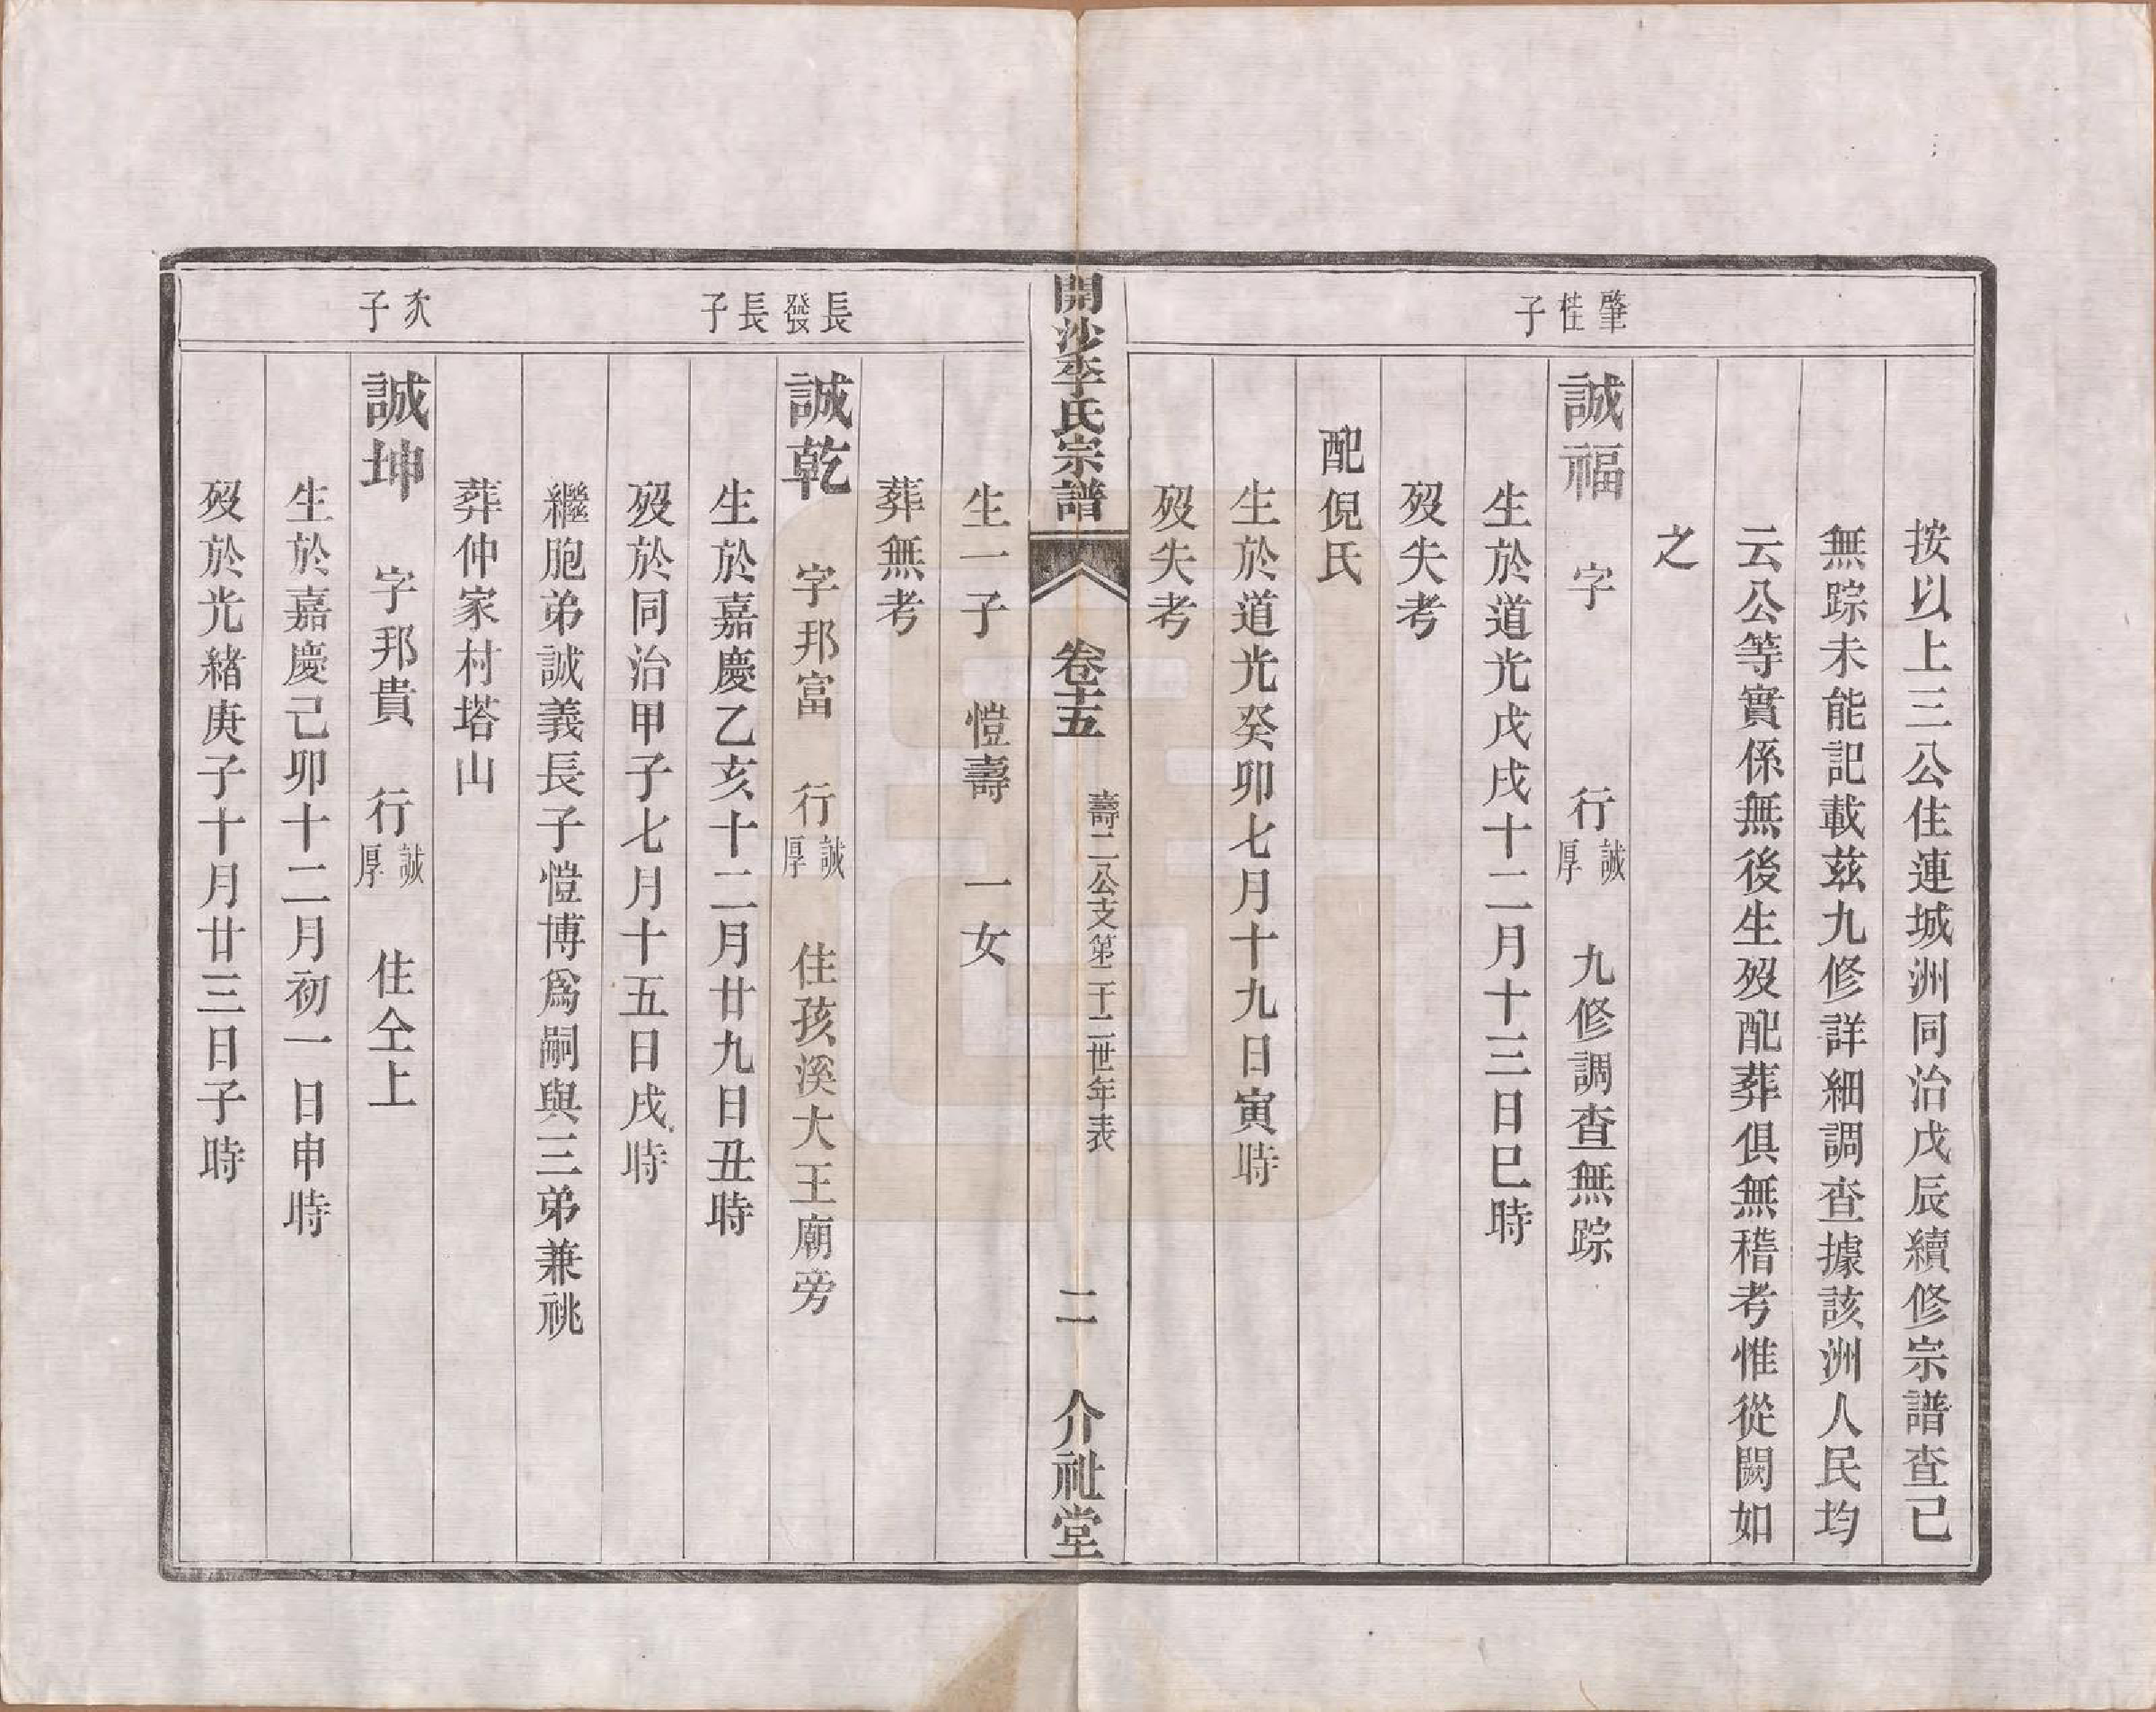 按以上三公住連城洲同治戊辰續修宗譜查已
無踪未能記載茲九修詳細調查據該洲人民均
云公等實係無後生歿配葬俱無稽考惟從闕如
之
肇性子
誠福 字 行誠厚 九修調查無踪
生於道光戊戌十二月十三日巳時
歿失考
配倪氏
生於道光癸卯七月十九日寅時
歿失考
開沙李氏宗譜 卷十五 壽二公支第二十二世年表 二 介祉堂
生一子 愷壽 一女
葬無考
長發長子
誠乾 字邦富 行誠厚 住孩溪大王廟旁
生於嘉慶乙亥十二月廿九日丑時
歿於同治甲子七月十五日戌時
繼胞弟誠義長子愷博爲嗣與三弟兼祧
葬仲家村塔山
次子
誠坤 字邦貴 行誠厚 住仝上
生於嘉慶己卯十二月初一日申時
歿於光緒庚子十月廿三日子時